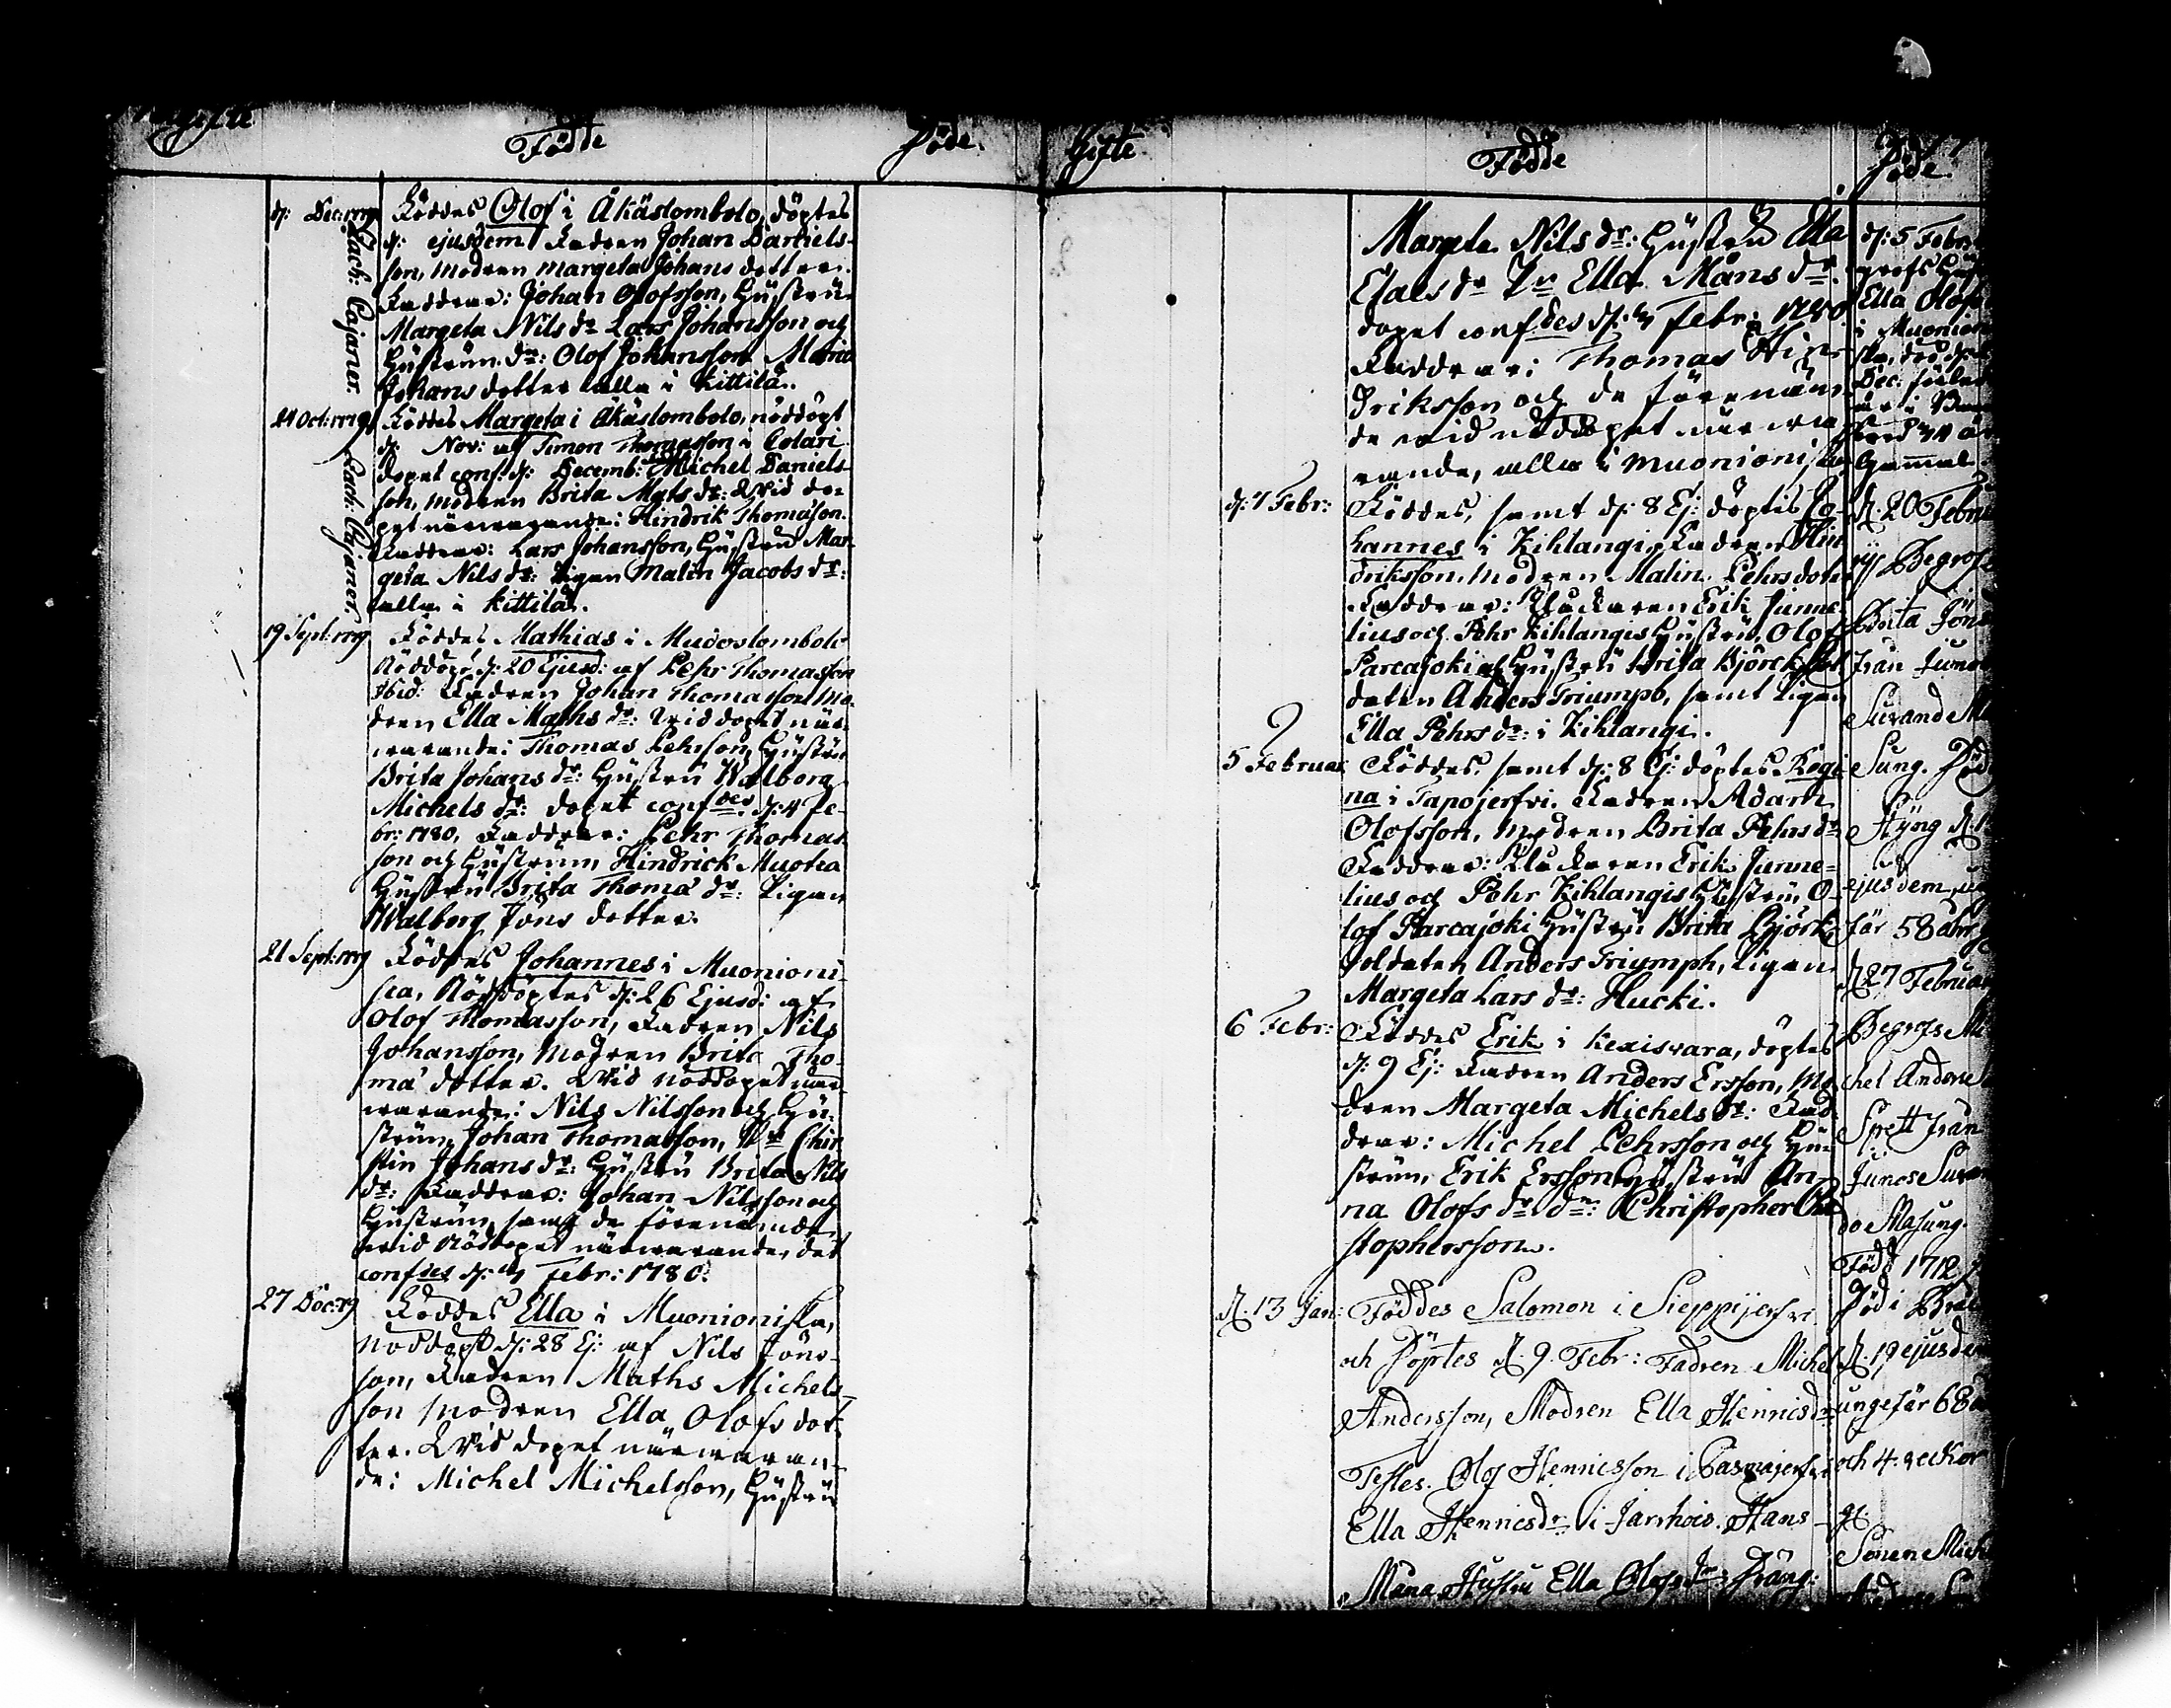 Födde
Döde.
d: Dec: 1779
Föddes Olof i Äkäslombolo, döptes
d: ejusdem Fadren Johan Daniels-
son, Modren Margeta Johans dotter.
Faddrar: Johan Olofsson, Hustru
Margeta Nils dr Lars Johansson och
Hustrun. dn: Olof Johansson Maria
Johans dotter alla i Kittilä.
Sach: Cajaner.
24 Oct: 1779
Föddes Margeta i Äkäslombolo, nöddöpt
d: Nov: af Simon Thomasson i Colari
dopet conf. d: Decemb: Michel Daniels-
son, Modren Brita Mats dr: Wid do-
pet närwarande: Hindrik Thomasson.
Faddrar: Lars Johansson, Hustru Mar-
geta Nils dr: Pigan Malin Jacobs dr:
alla i Kittilä.
Sach: Cajaner.
19 Sept: 1779
Föddes Mathias i Mudoslombolo
Nöddöpt d: 20 Ejusd: af Pehr Thomasson
ibid: Fadren Johan Thomasson Mo-
dren Ella Maths dr: Wid dopet när-
warande: Thomas Pehrsson, Hustru
Brita Johans dr: Hustru Walborg
Michels dr: dopet confdes d: 4 Fe-
br: 1780. Faddrar: Pehr Thomas-
son och Hustrun, Hindrick Muotca
Hustru Brita Thoma dr: Pigan
Walborg Jöns dotter.
21 Sept: 1779
Föddes Johannes i Muonioni-
sca, Nöddöptes d: 26 Ejusd: af
Olof Thomasson, Fadren Nils
Johansson, Modren Brita Tho-
ma dotter. Wid nöddopet när-
warande: Nils Nilsson och Hu-
strun, Johan Thomasson, Chir-
stin Johans dr: Hustru Brita Nils
dr: Faddrar: Johan Nilsson och
Hustrun, samt de förenämde
wid Nöddopet närwarande, det
confdes d: Febr: 1780.
27 Dec: 79
Föddes Ella i Muonioniska,
nöddöpt d: 28 Ej: af Nils Jöns-
son, Fadren Maths Michels-
son Modren Ella Olofs dot-
ter. Wid dopet närwaran-
de: Michel Michelsson, Hustru
Gifte
Födde
Döde.
Margeta Nils dr: Hustru Ella
Esaes dr Ella Måns dr.
dopet confdes d: Febr: 1780
Faddrar: Thomas Hin-
driksson och de förenäm-
de wid nöddopet närwa-
rande, alla i Muonioniska
d: 7 Febr:
Föddes, samt d: 8 Ej: döptes Jo-
hannes i Kihlangi. Fadren Hin-
driksson, Modren Malin Pehrs dotter
Faddrar: Klockaren Erik Junne-
lius och Pehr Kihlangis Hustru, Olof
Parcajoki och Hustru Brita Björck, Sol-
daten Anders Triumph, samt Pigan
Ella Pehrs dr: i Kihlangi.
5 Februar
Föddes, samt d: 8 Ej: döptes Regi-
na i Tapojerfvi. Fadren Adam
Olofsson, Modren Brita Pehrs dr
Faddrar: Klockaren Erik Junne-
lius och Pehr Kihlangis Hustru, O-
lof Parcajoki Hustru Brita Björk,
Soldaten Anders Triumph, Pigan
Margeta Lars dr: Hucki.
6 Febr:
Föddes Erik i Kexisvara, döptes
d: 9 Ej: Fadren Anders Ersson, Mo-
dren Margeta Michels dr: Fad-
drar: Michel Pehrsson och Hu-
strun, Erik Ersson Hustru An-
na Olofs dr dn: Christopher Chri-
stophersson.
d. 13 Jan:
Föddes Salomon i Sieppijerfvi
och Döptes d. 9 Febr: Fadren Michel
Andersson, Modren Ella Hennicsdr
Testes. Olof Hennicsson i Pasmajerfvi
Ella Hennicsdr i Jarrhois. Hans
Mana Hustru Ella Olofsdr: Dräng:
d: 5 Febr
grofs Hust
Ella Olofs
i Muonion
ska, död d:
Dec.
Gammal
d. 20 Febru
Begrofs
Brita Jöns
från Junos
Suvando
Sung. Död
ejusdem, un
för 58 åhr
d. 27 Februar
Begrofs Mi-
chel Anders
Spett från
Junos Suvan
do Masung.
Född 1712
Död i Brö
d. 19 ejusdem
ungefär 68
och 4. veckor
d.
Sonen Mich